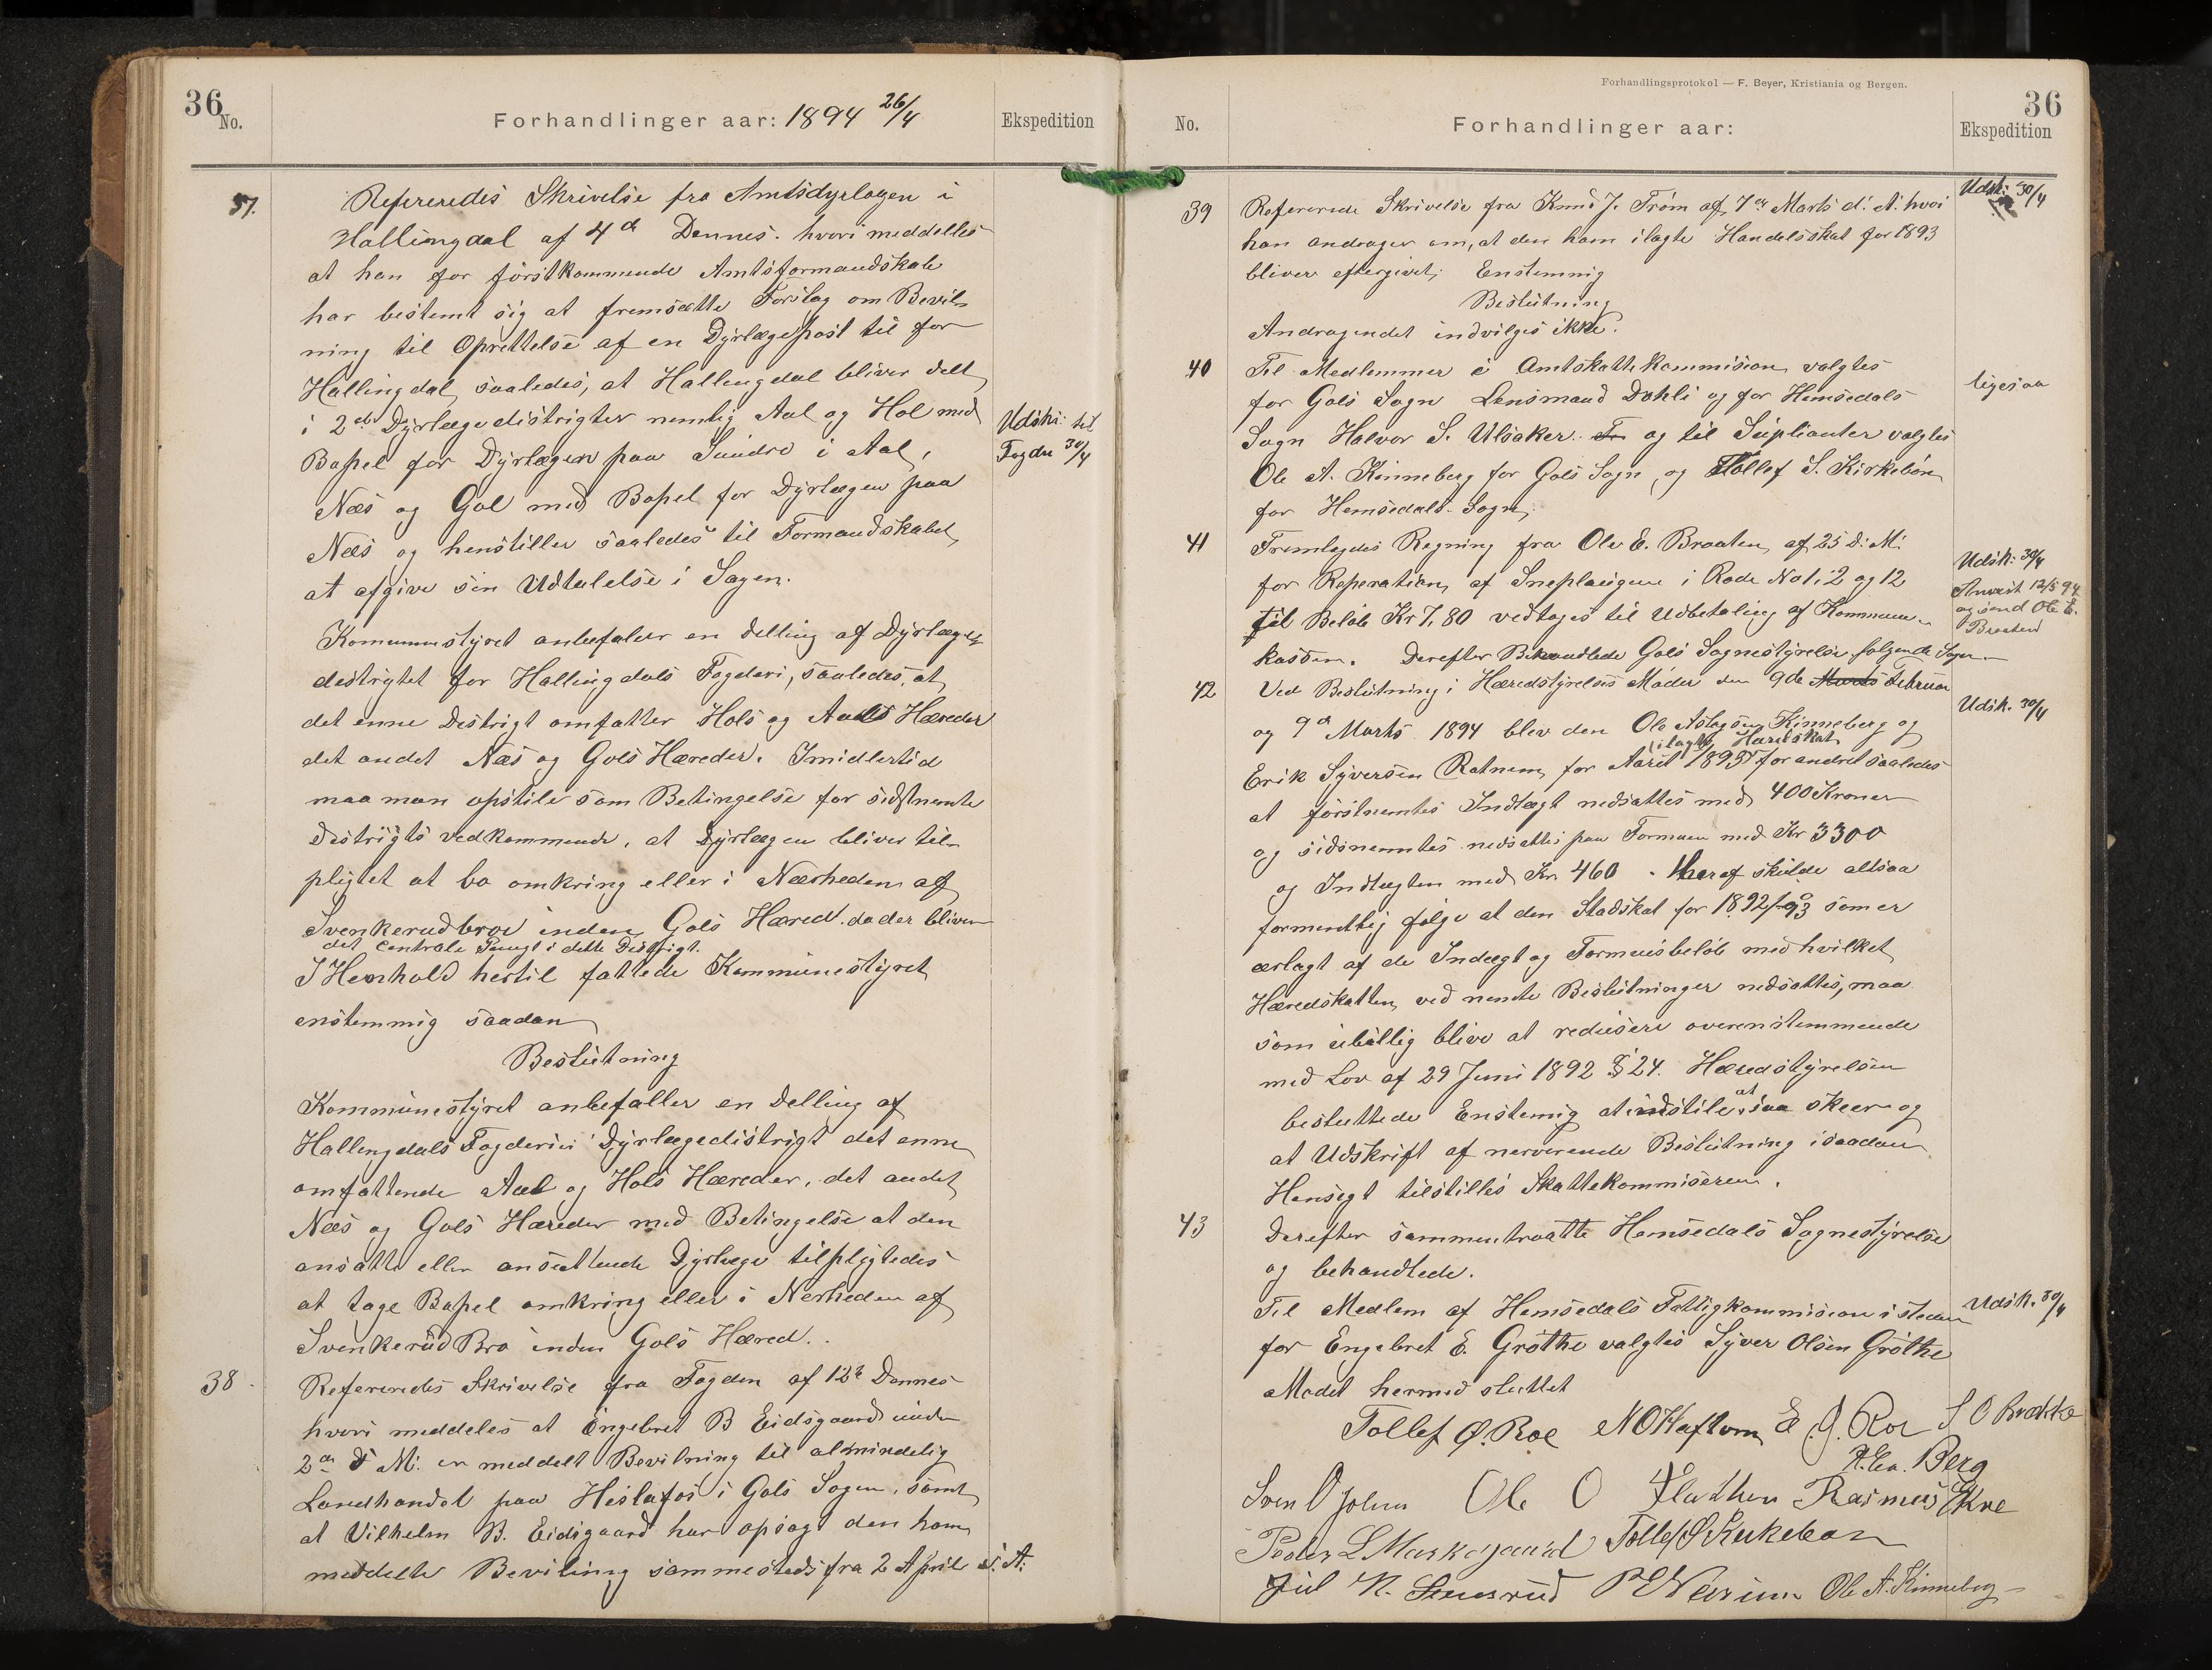 36
No.
Forhandlinger aar: 1894 26/4
Ekspedition
37.
Refereredes Skrivelse fra Amtsdyrlægen i
Hallingdal af 4de Dennes. hvori meddelles
at han for förstkommende Amtsformandskab
har bestemt sig at fremsætte Forslag om Bevil-
ning til Oprettelse af en Dyrlægepost til for
Hallingdal, saaledes, at Hallingdal bliver delt
i 2de Dyrlægedistrigter nemlig Aal og Hol med
Bopel for Dyrlægen paa Sundre i Aal,
Udski: til
Fogden 30/4
Næs og Gol med Bopel for Dyrlægen paa
Næs og henstiller saaledes til Formandskabet
at afgive sin Udtalelse i Sagen.
Komunnestyret anbefaler en delling af Dyrlæge-
destrigtet for Hallingdals Fogderi, saaledes, at
det enne Destrigt omfatter Hols og Aals Hæreder
det andet Næs og Gols Hæreder. Imidlertid
maa man opstile som Betingelse for sidstnemte
Destrigts vedkommende, at Dyrlægen bliver til-
pligtet at bo omkring eller i Nærheden af
Svenkerudbroe inden Gols Hæred. da der bliver
det Centrale Pungt i dette Distrigt.
I Henhold hertil fattede Kommunestyret
enstemmig saadan
Beslutning
Kommunestyret anbefaller en delling af
Hallingdals Fogderi i Dyrlægedistrigt det enne
omfattende Aal og Hols Hæreder, det andet
Næs og Gols Hæreder med Betingelse at den
ansatte eller ansettende Dyrlæge tilpligtedes
at tage Bopel omkring eller i Nerheden af
Svenkerud Bro inden Gols Hæred.
38.
Refereredes Skrivelse fra Fogden af 12te Dennes
hvori meddeles at Engebret B Eidsgaard under
2den d M. er meddelt Bevilning til almindelig
Landhandel paa Heslafos i Gols Sogn, samt
at Vilhelm B. Eidsgaard har opsagt den ham
meddelte Beviling sammesteds fra 2 April d. A.
Forhandlingsprotokol — F. Beyer, Kristiania og Bergen.
36
No.
Forhandlinger aar:
Ekspedition
39
Refererede Skrivelse fra Knud J. Tröm af 7de Marts d. A. hvori
Udsk: 30/4
han andrager om, at den ham ilagte Handelsskat for 1893
bliver eftergivet; Enstemmig
Beslutning
Andragendet indvilges ikke.
40
Til Medlemmer i Amtskattekommision valgtes
ligesaa
for Gols Sogn Lensmand Dahli og for Hemsedals
Sogn Halvor S. Ulsaker. og til Suplianter valgtes
Ole A. Kinneberg for Gols Sogn, og Tollef S. Kirkebön
for Hemsedals Sogn.
41
Fremlagdes Regning fra Ole E. Braaten af 25 d. M.
Udsk: 30/4
for Reperation af Sneplaugene i Rode No 1, 2 og 12
Anvist 12/5 94
og send Ole E.
Braaten
til Belöb Kr 7,80 vedtoges til Udbetaling af Kommune-
kassen. Derefter Behandlede Gols Sognestyrelse folgende Sager
42
Ved Beslutning i Hæredstyrelses Möder den 9de Marts Februar
Udsk. 30/4
og 9de Marts 1894 blev den Ole Aslagsen Kinneberg og
ilagte Hæredskat
Erik Syversen Rotnem for Aaret 1893 forandret saaledes
at förstnemtes Indtægt nedsattes med 400 Kroner
og sidsnemtes nedsattes paa Formuen med Kr 3300
og Indtægten med Kr. 460. Heraf skulde altsaa
formentlig fölge at den Stadskat for 1892/93 som er
ærlagt af de Indægt og Formuesbelöb med hvilket
Hæredskatten ved nemte Beslutninger nedsattes, maa
som ubillig blive at redusere overenstemmende
med Lov af 29 Juni 1892 § 24. Hæredstyrelsen
besluttede Enstemig at indstile at saa skeer og
at Udskrift af nerverende Beslutning i saadan
Hensigt tilstilles Skattekommiseren.
43
Derefter sammentraatte Hemsedals Sognestyrelse
og behandlede.
Til Medlem af Hemsedals Fattigkommision i steden
Udsk. 30/4
for Engebret E. Gröthe valgtes Syver Olsen Gröthe
Mödet hermed sluttet
Tollef Ø. Roe N O Haftorn E J. Roe S O Brække
Berg
Sven O Ole O Flathen Rasmus Skre
Peder L Markegaard Tollef S Kirkeböen
Ole A. Kinneberg